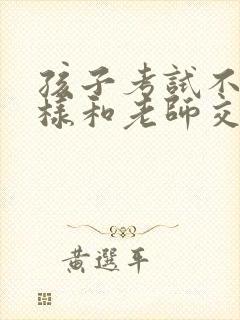 孩子考試不
樣和老師交
黃選平